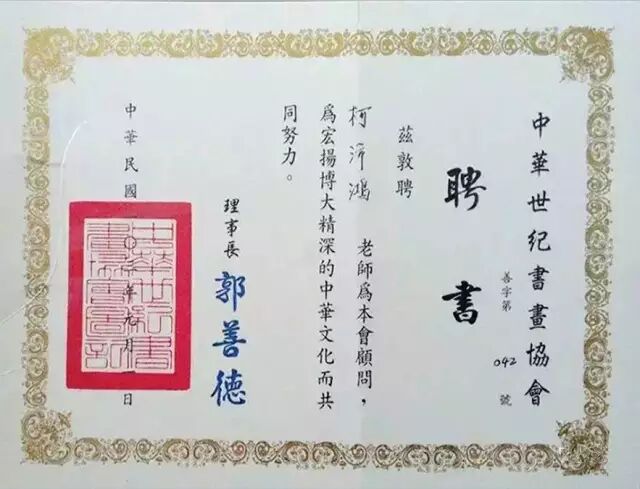 中華世紀書畫協會
善字第 042 號
聘書
茲敦聘
柯 鴻 老師爲本會顧問，
爲宏揚博大精深的中華文化而共
同努力。
理事長 郭善德
中華民國一〇 年元月一日